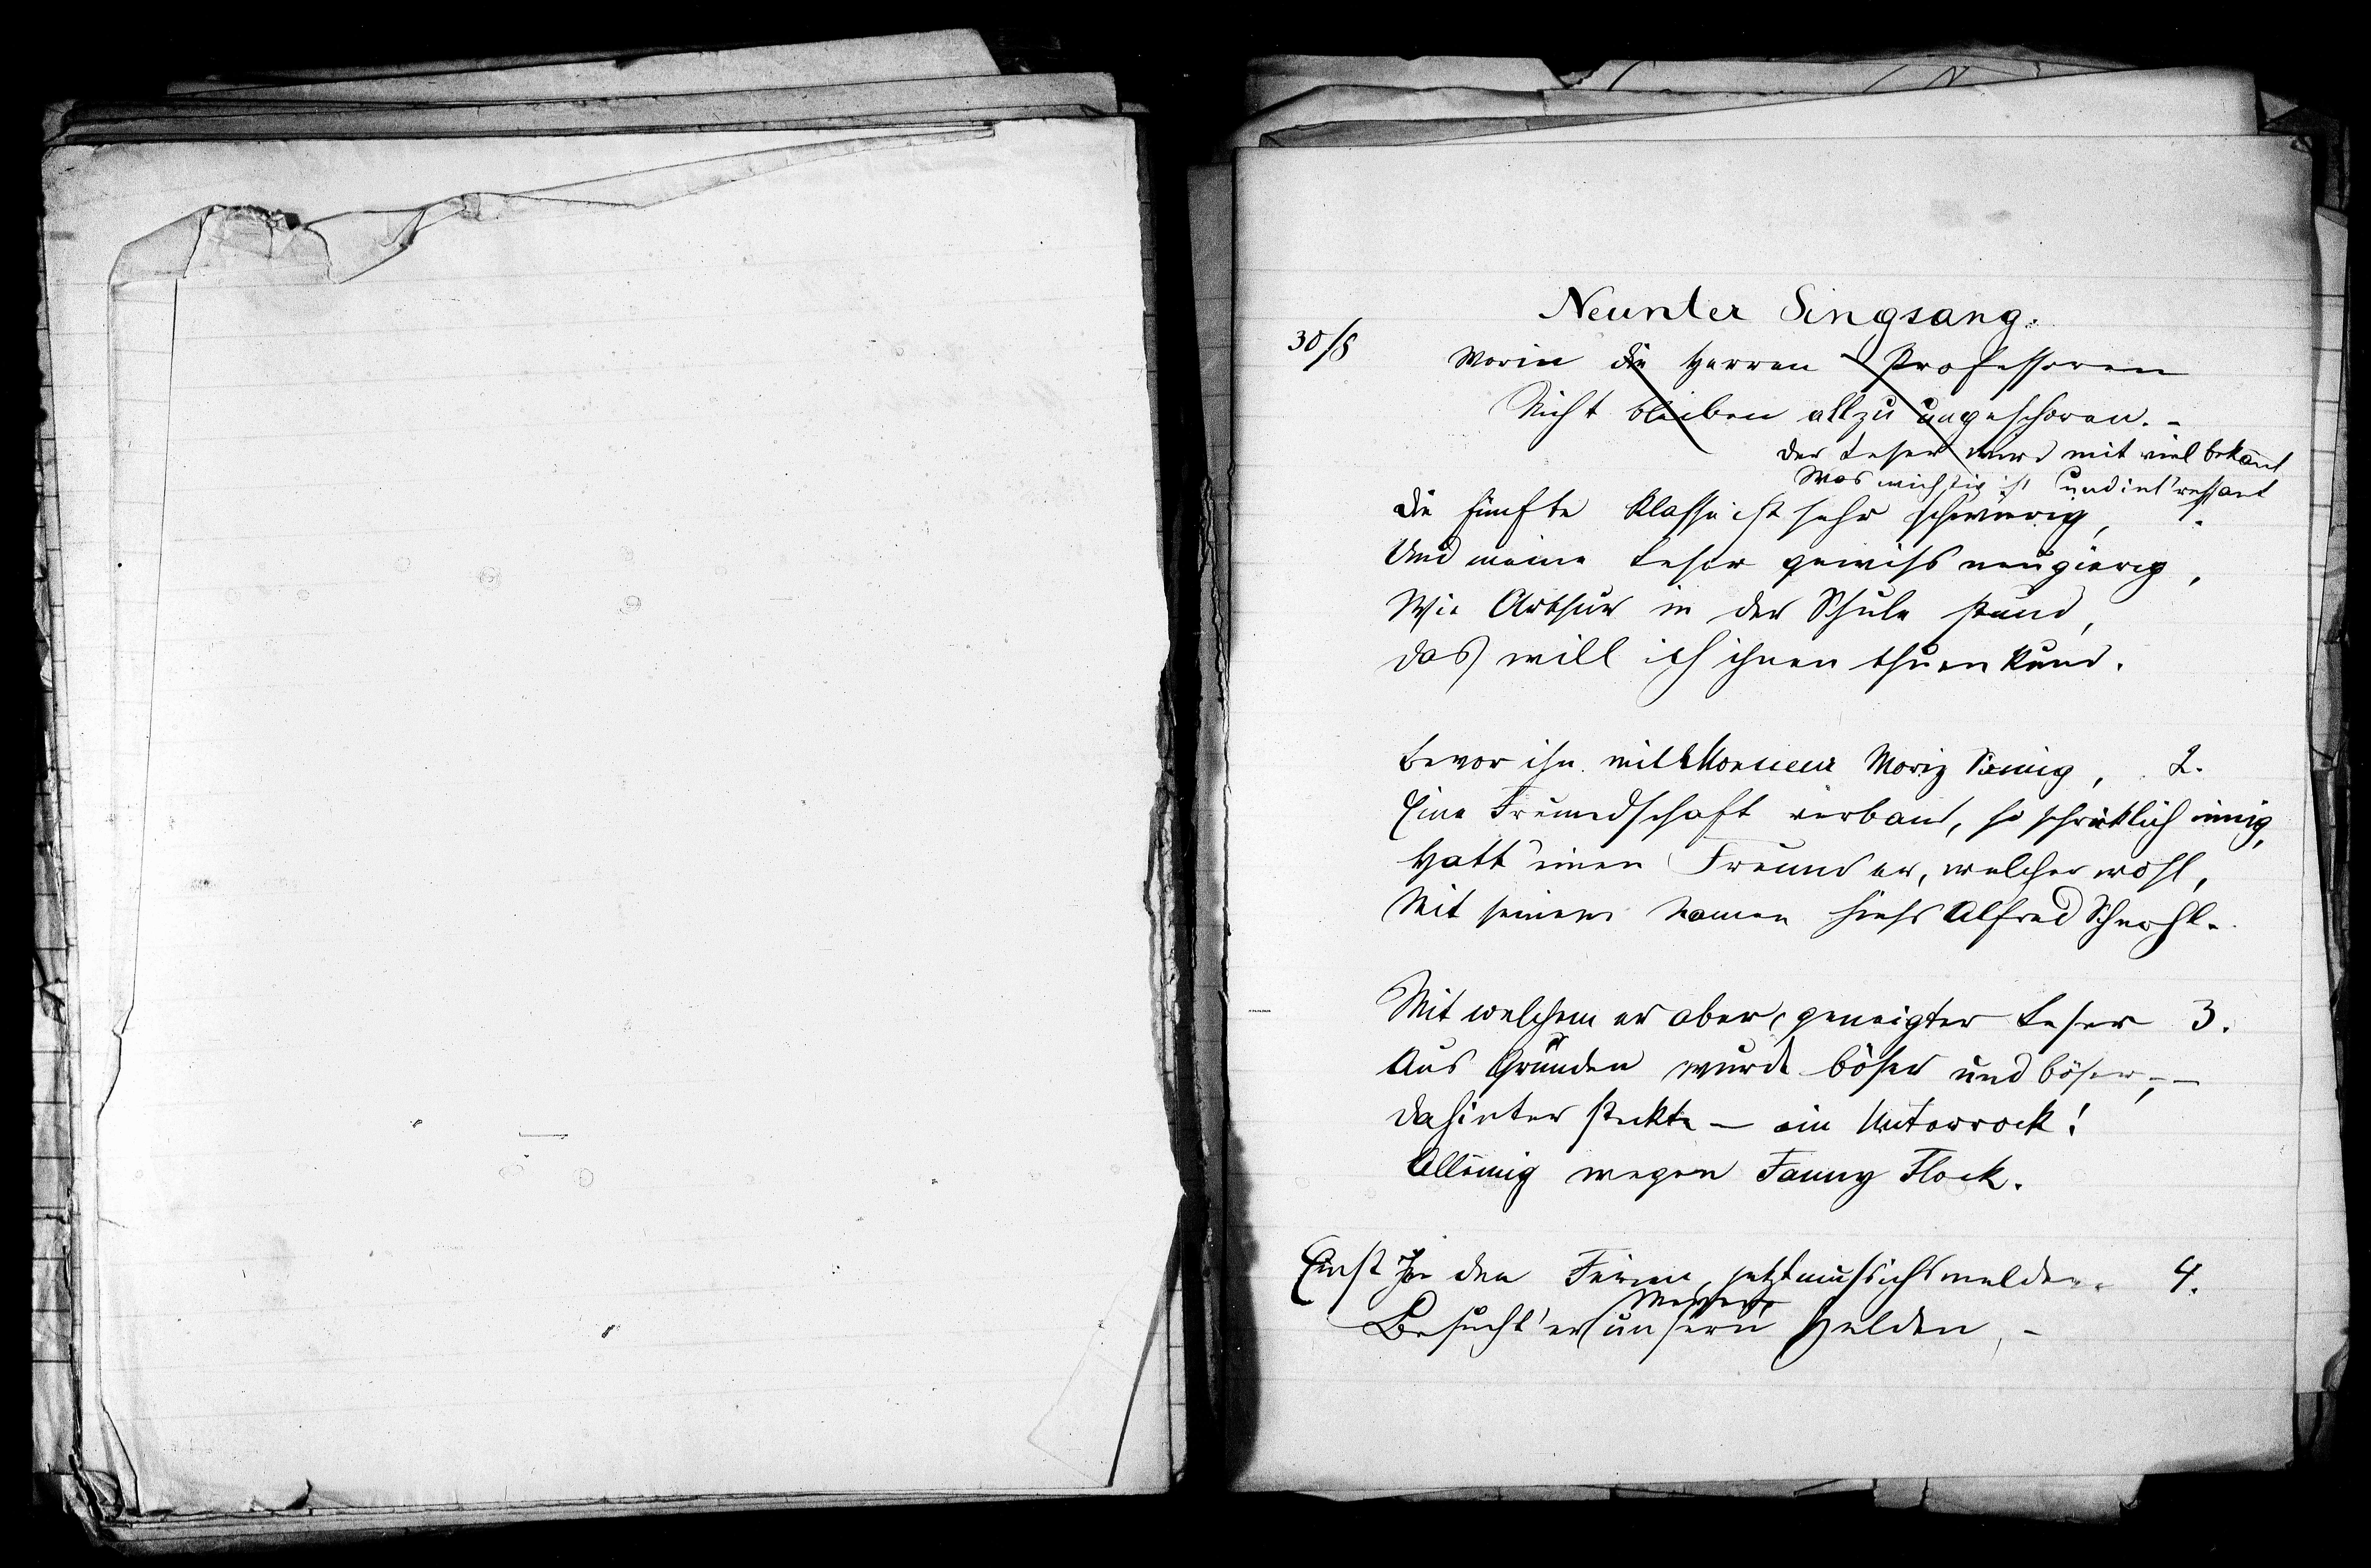 Neunter Singsang.
30/8
Worin die Herren Professoren
Nicht bleiben allzu ungeschoren. -
Der Leser wird mit viel bekannt
Was wichtig ist und int'ressant
Die fünfte Klasse ist sehr schwierig, 1.
Und meine Leser gewiss neugierig,
Wie Arthur in der Schule stund,
Das will ich ihnen thuen kund.
Bevor ihn mit Monsieur Moriz, 2.
Eine Freundschaft verband, so schrecklich innig,
Hatt' einen Freund er, welcher wohl,
Mit seinem Namen hiess Alfred Schnohl.
Mit welchem er aber, geneigter Leser 3.
Aus Gründen wurde böser und böser, -
Dahinter steckte - ein Unterrock!
Alleinig wegen Fanny Flock.
Einst In den Ferien, jetzt muss ichs melden. 4.
Besucht' er unsern Helden, -